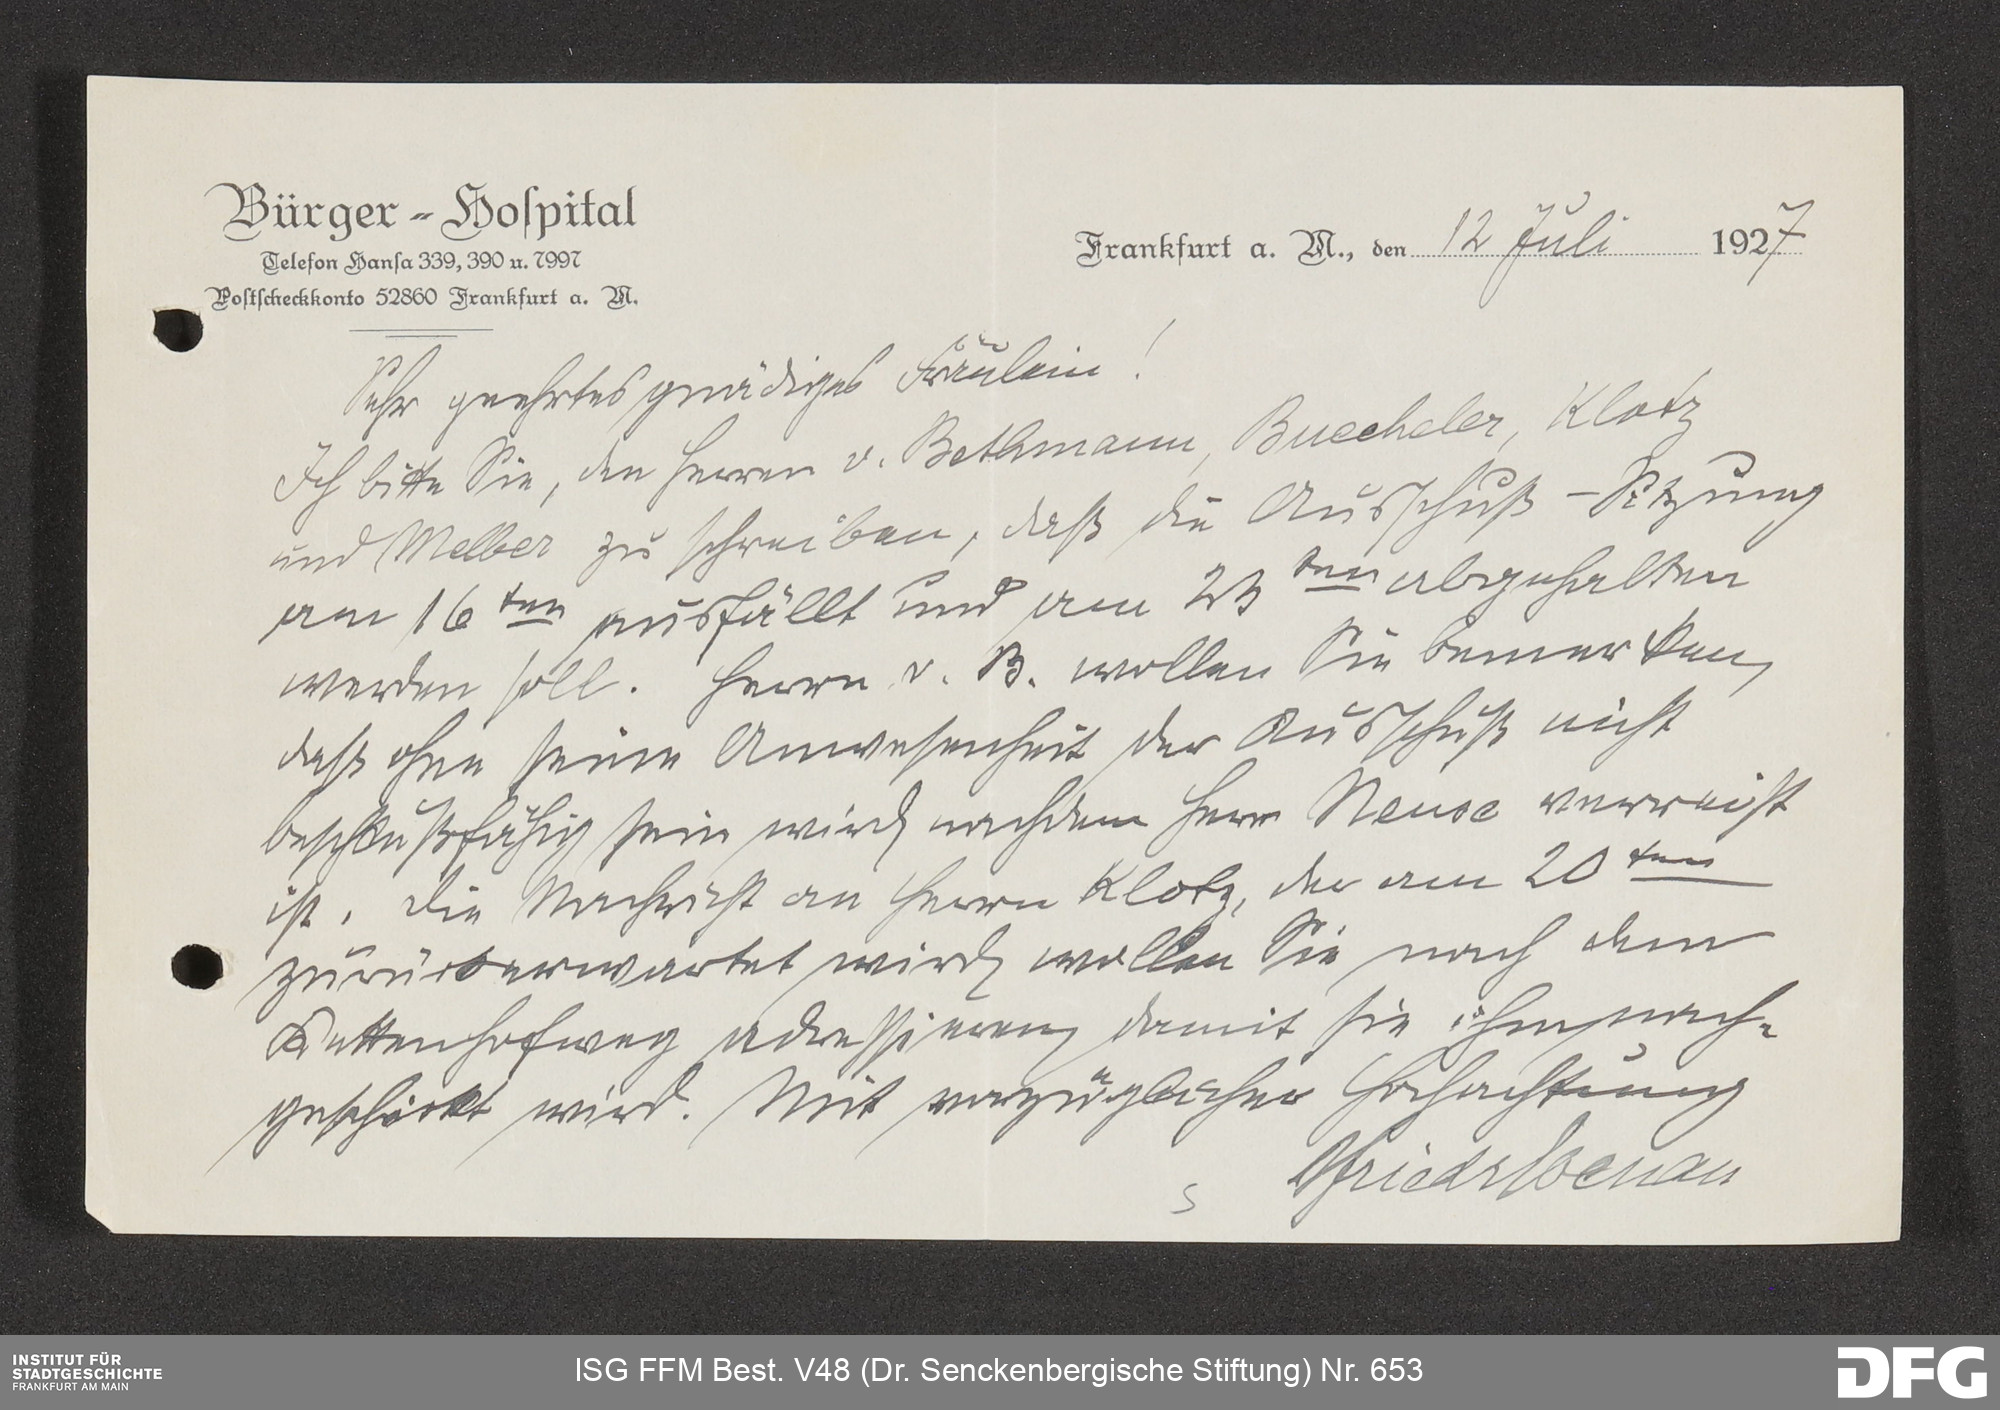 Bürger-Hospital
Telefon Hansa 339, 390 u. 7997
Postscheckkonto 52860 Frankfurt a. M.
Frankfurt a. M., den 12 Juli 1927
Sehr geehrtes gnädiges Fräulein!
Ich bitte Sie, den Herren v. Bethmann, Buecheler, Klotz
und Melber zu schreiben, daß die Ausschuß-Sitzung
am 16ten ausfällt und am 23ten abgehalten
werden soll. Herrn v. B. wollen Sie bemerken,
daß ohne seine Anwesenheit der Ausschuß nicht
beschlußfähig sein wird, nachdem Herr verreist
ist. Die Nachricht an Herrn Klotz, der am 20ten
zurückerwartet wird, wollen Sie nach dem
Kettenhofweg adressieren, damit sie ihm nach-
geschickt wird. Mit vorzüglicher Hochachtung
INSTITUT FÜR
STADTGESCHICHTE
FRANKFURT AM MAIN
ISG FFM Best. V48 (Dr. Senckenbergische Stiftung) Nr. 653
DFG